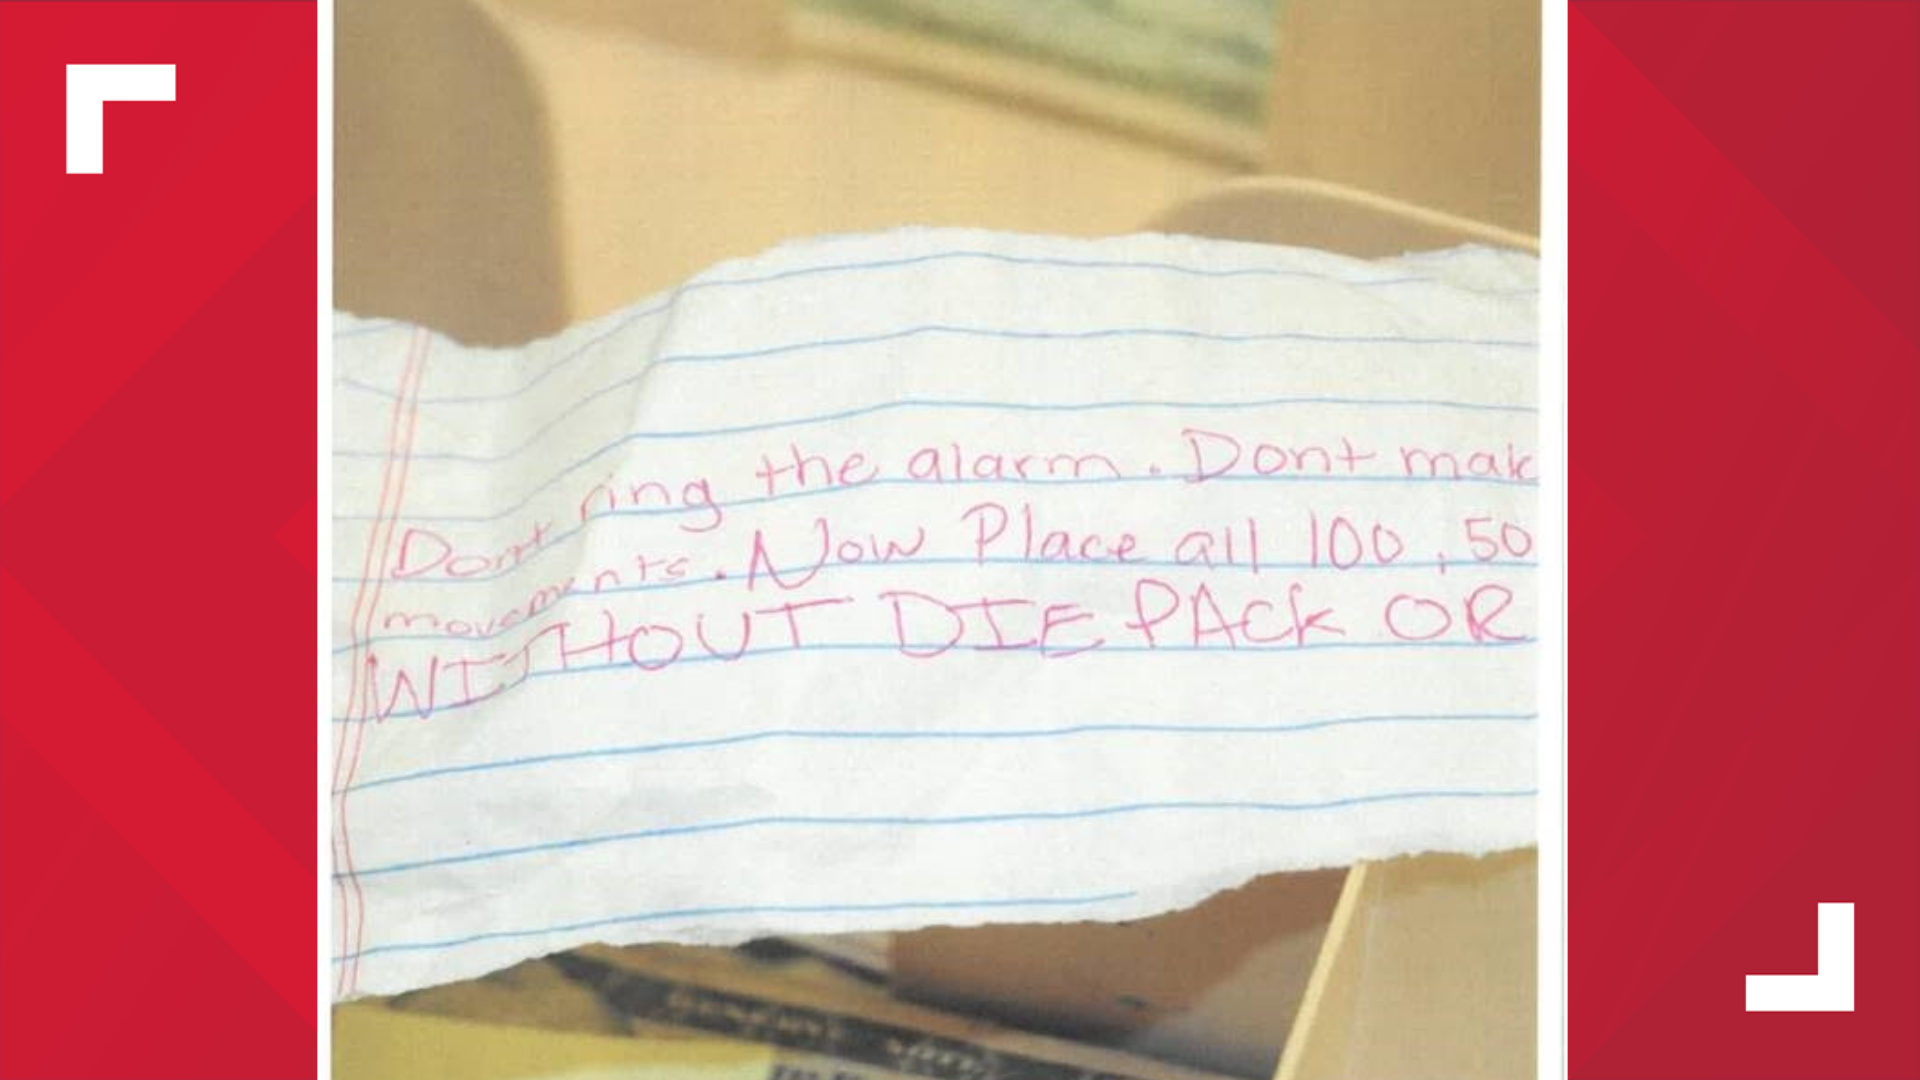 Dont ring the alarm. Dont mak
movements. Now Place all 100, 50
WITHOUT DIE PACK OR